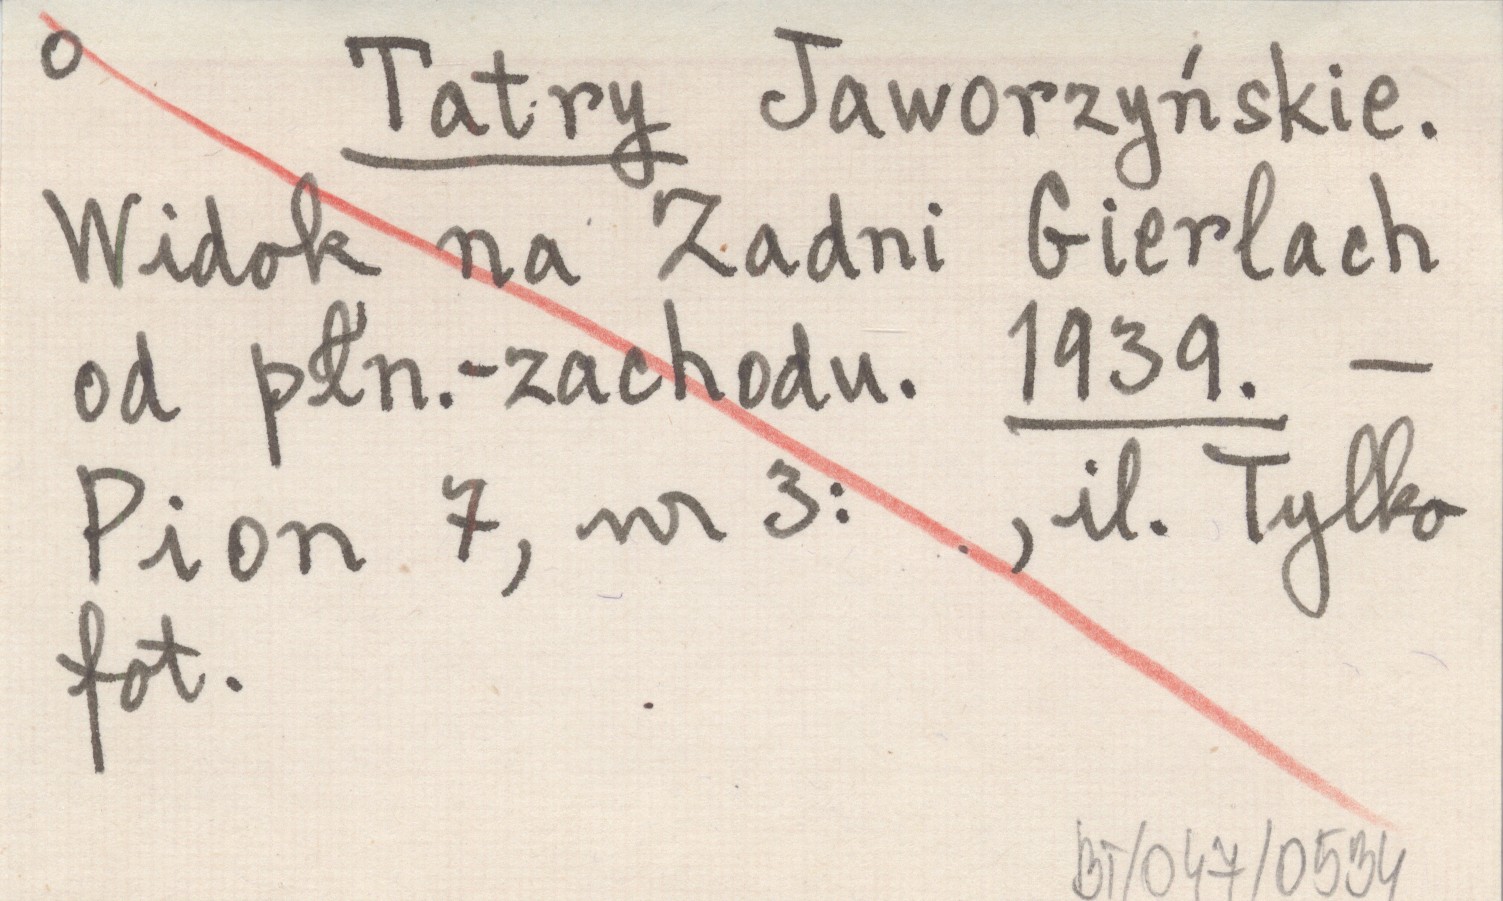 o Tatry Jaworzyńskie.
Widok na Zadni Gierlach
od płn.-zachodu. 1939. —
Pion 7, nr 3: , il. Tylko
fot.
BT/047/0534